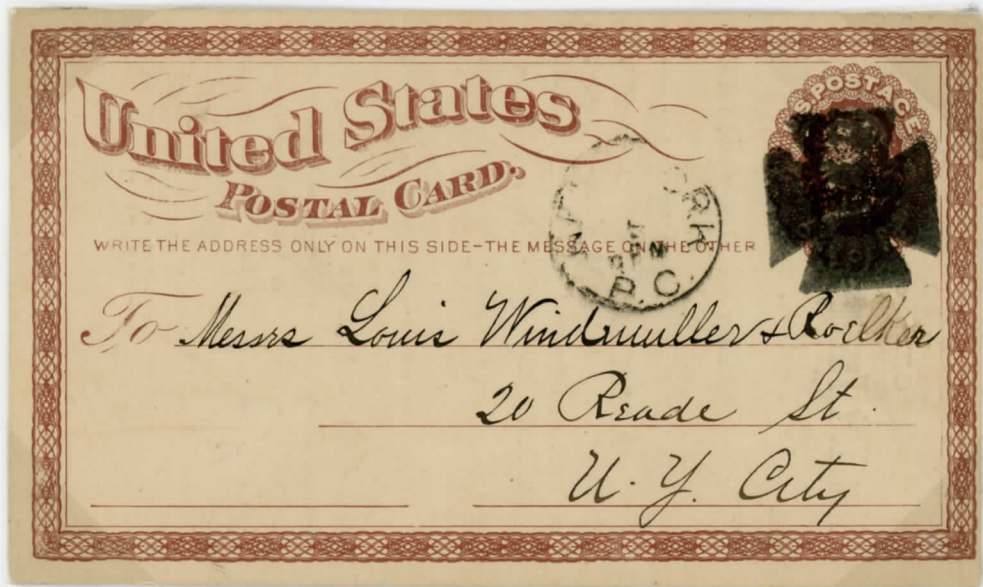 United States
POSTAL CARD.
S. POSTAGE
WRITE THE ADDRESS ONLY ON THIS SIDE-THE MESSAGE ON THE OTHER
P.C.
To Messrs Louis Windmuller & Roelker
20 Reade St.
N. Y. City